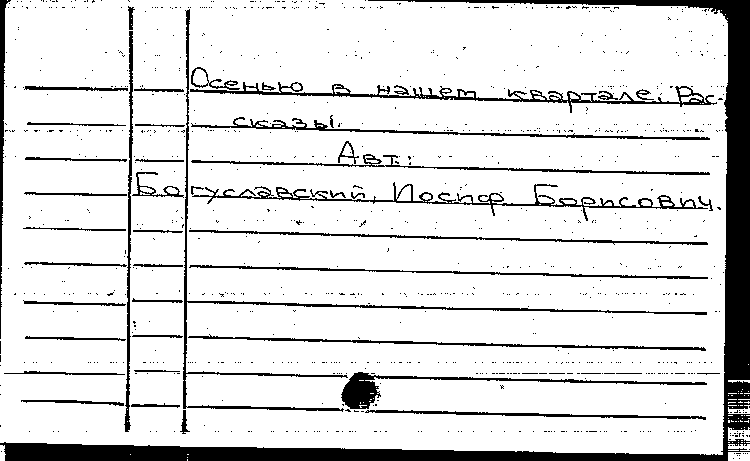 Осенью в нашем квартале. Рас-
сказы.
Авт.:
Богуславский, Иосиф Борисович.